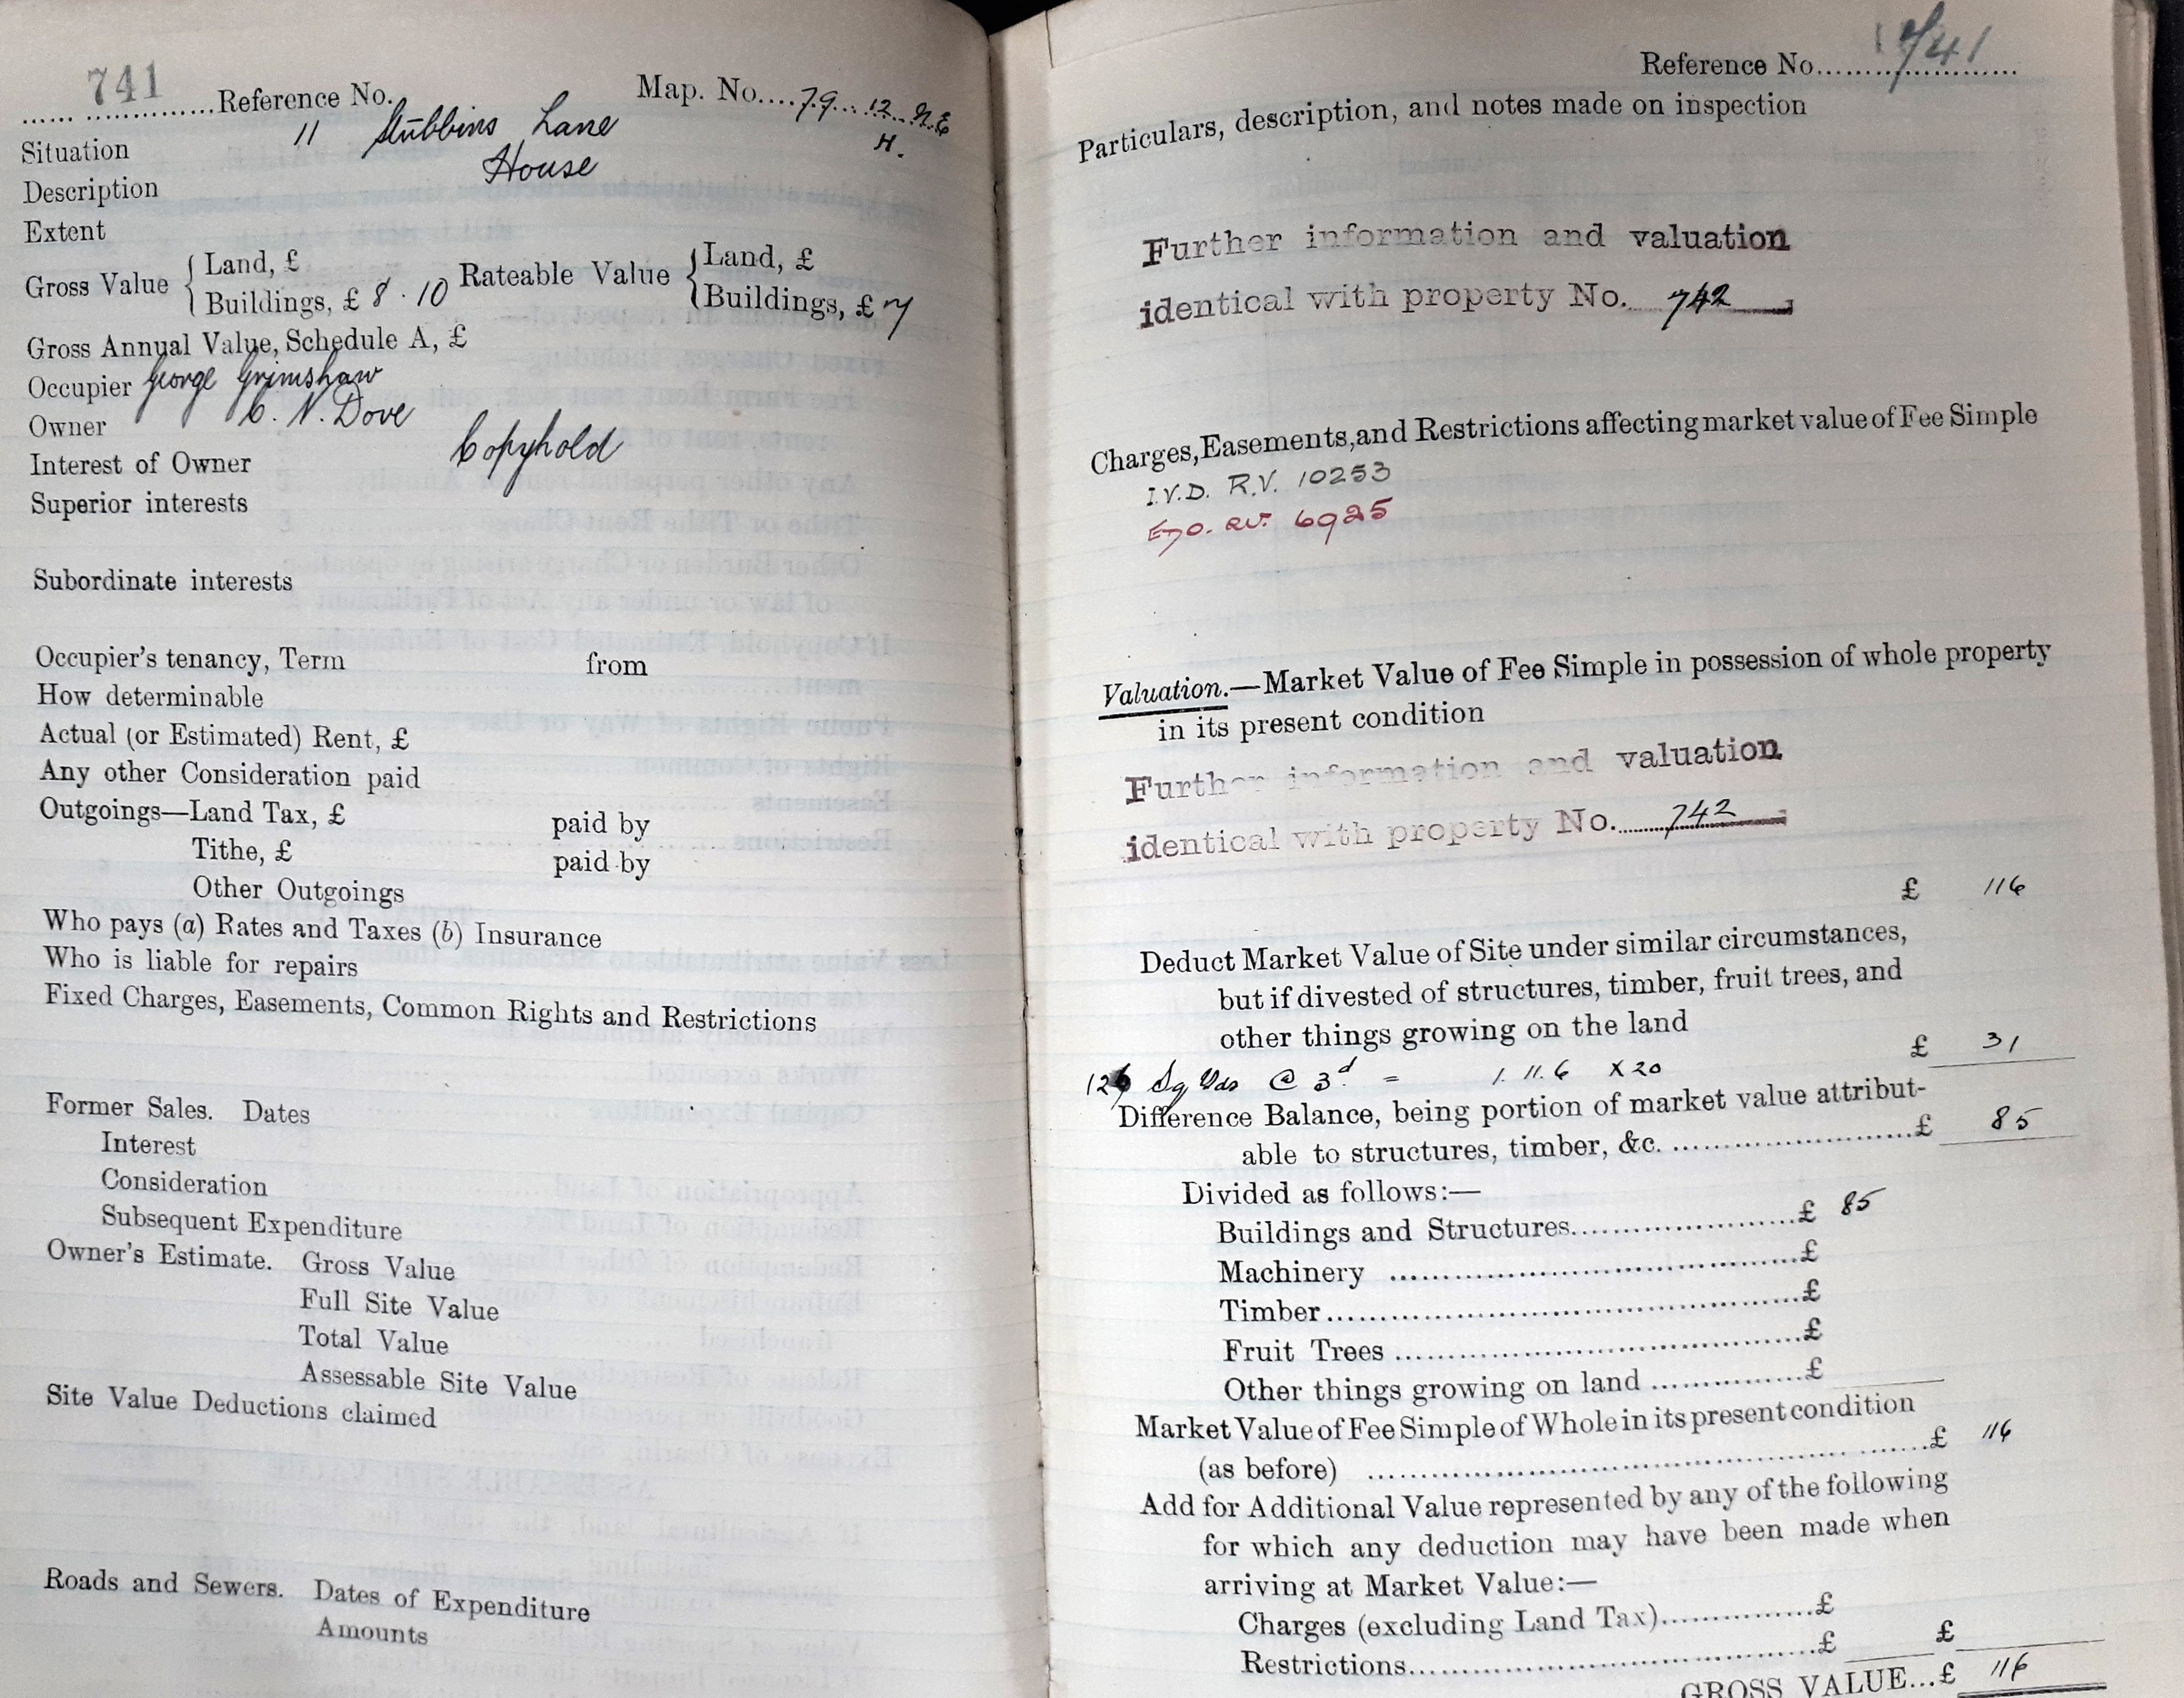 741
...... ..............Reference No.
Map. No....79...12..N.E
H.
Situation 11 Stubbins Lane
Description House
Extent
Gross Value { Land, £ Rateable Value { Land, £
Buildings, £ 8 . 10 Buildings, £ 7
Gross Annual Value, Schedule A, £
Occupier George Grimshaw
Owner C. N. Dove
Interest of Owner Copyhold
Superior interests
Subordinate interests
Occupier's tenancy, Term from
How determinable
Actual (or Estimated) Rent, £
Any other Consideration paid
Outgoings—Land Tax, £ paid by
Tithe, £ paid by
Other Outgoings
Who pays (a) Rates and Taxes (b) Insurance
Who is liable for repairs
Fixed Charges, Easements, Common Rights and Restrictions
Former Sales. Dates
Interest
Consideration
Subsequent Expenditure
Owner's Estimate. Gross Value
Full Site Value
Total Value
Assessable Site Value
Site Value Deductions claimed
Roads and Sewers. Dates of Expenditure
Amounts
Reference No.......................
Particulars, description, and notes made on inspection
Further information and valuation
identical with property No. 742
Charges, Easements, and Restrictions affecting market value of Fee Simple
I.V.D. R.V. 10253
6925
Valuation.—Market Value of Fee Simple in possession of whole property
in its present condition
Further information and valuation
identical with property No. 742
£ 116
Deduct Market Value of Site under similar circumstances,
but if divested of structures, timber, fruit trees, and
other things growing on the land
£ 31
126 Sq Yds @ 3d = 1. 11. 6 X 20
Difference Balance, being portion of market value attribut-
able to structures, timber, &c. ..............................£ 85
Divided as follows:—
Buildings and Structures.........................£ 85
Machinery ..............................................£
Timber.....................................................£
Fruit Trees ..............................................£
Other things growing on land .................£
Market Value of Fee Simple of Whole in its present condition
(as before) ..............................................................£ 116
Add for Additional Value represented by any of the following
for which any deduction may have been made when
arriving at Market Value:—
Charges (excluding Land Tax)..................£
Restrictions.................................................£ £
GROSS VALUE...£ 116